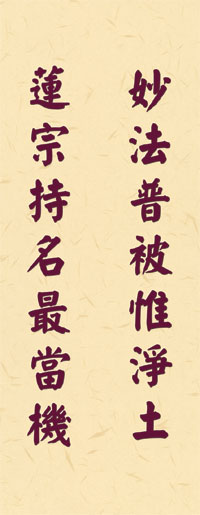 妙法普被惟淨土
蓮宗持名最當機